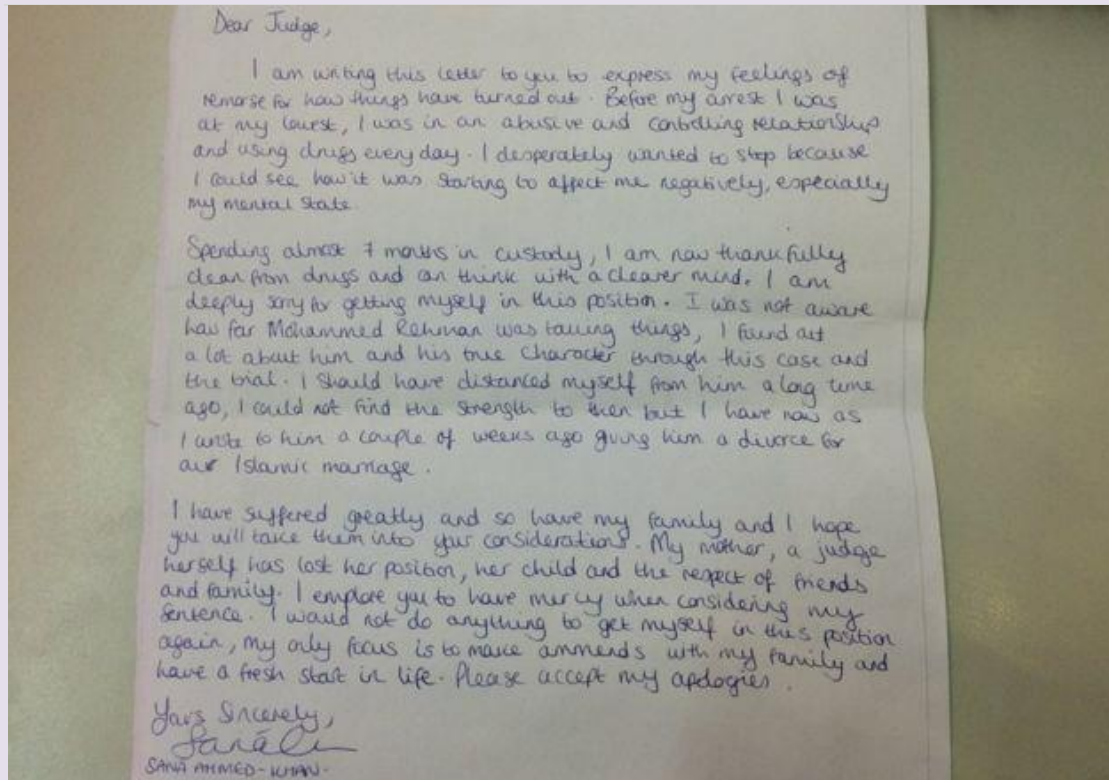 Dear Judge,
I am writing this letter to you to express my feelings of
remorse for how things have turned out. Before my arrest I was
at my lowest, I was in an abusive and controlling relationship
and using drugs every day. I desperately wanted to stop because
I could see how it was starting to affect me negatively, especially
my mental state.
Spending almost 7 months in custody, I am now thankfully
clean from drugs and can think with a clearer mind. I am
deeply sorry for getting myself in this position. I was not aware
how far Mohammed Rehman was taking things, I found out
a lot about him and his true character through this case and
the trial. I should have distanced myself from him a long time
ago, I could not find the strength to then but I have now as
I wrote to him a couple of weeks ago giving him a divorce for
our Islamic marriage.
I have suffered greatly and so have my family and I hope
you will take them into your considerations. My mother, a judge
herself has lost her position, her child and the respect of friends
and family. I emplore you to have mercy when considering my
sentence. I would not do anything to get myself in this position
again, my only focus is to make ammends with my family and
have a fresh start in life. Please accept my apologies.
Yours Sincerely,
SANA AHMED-KHAN.